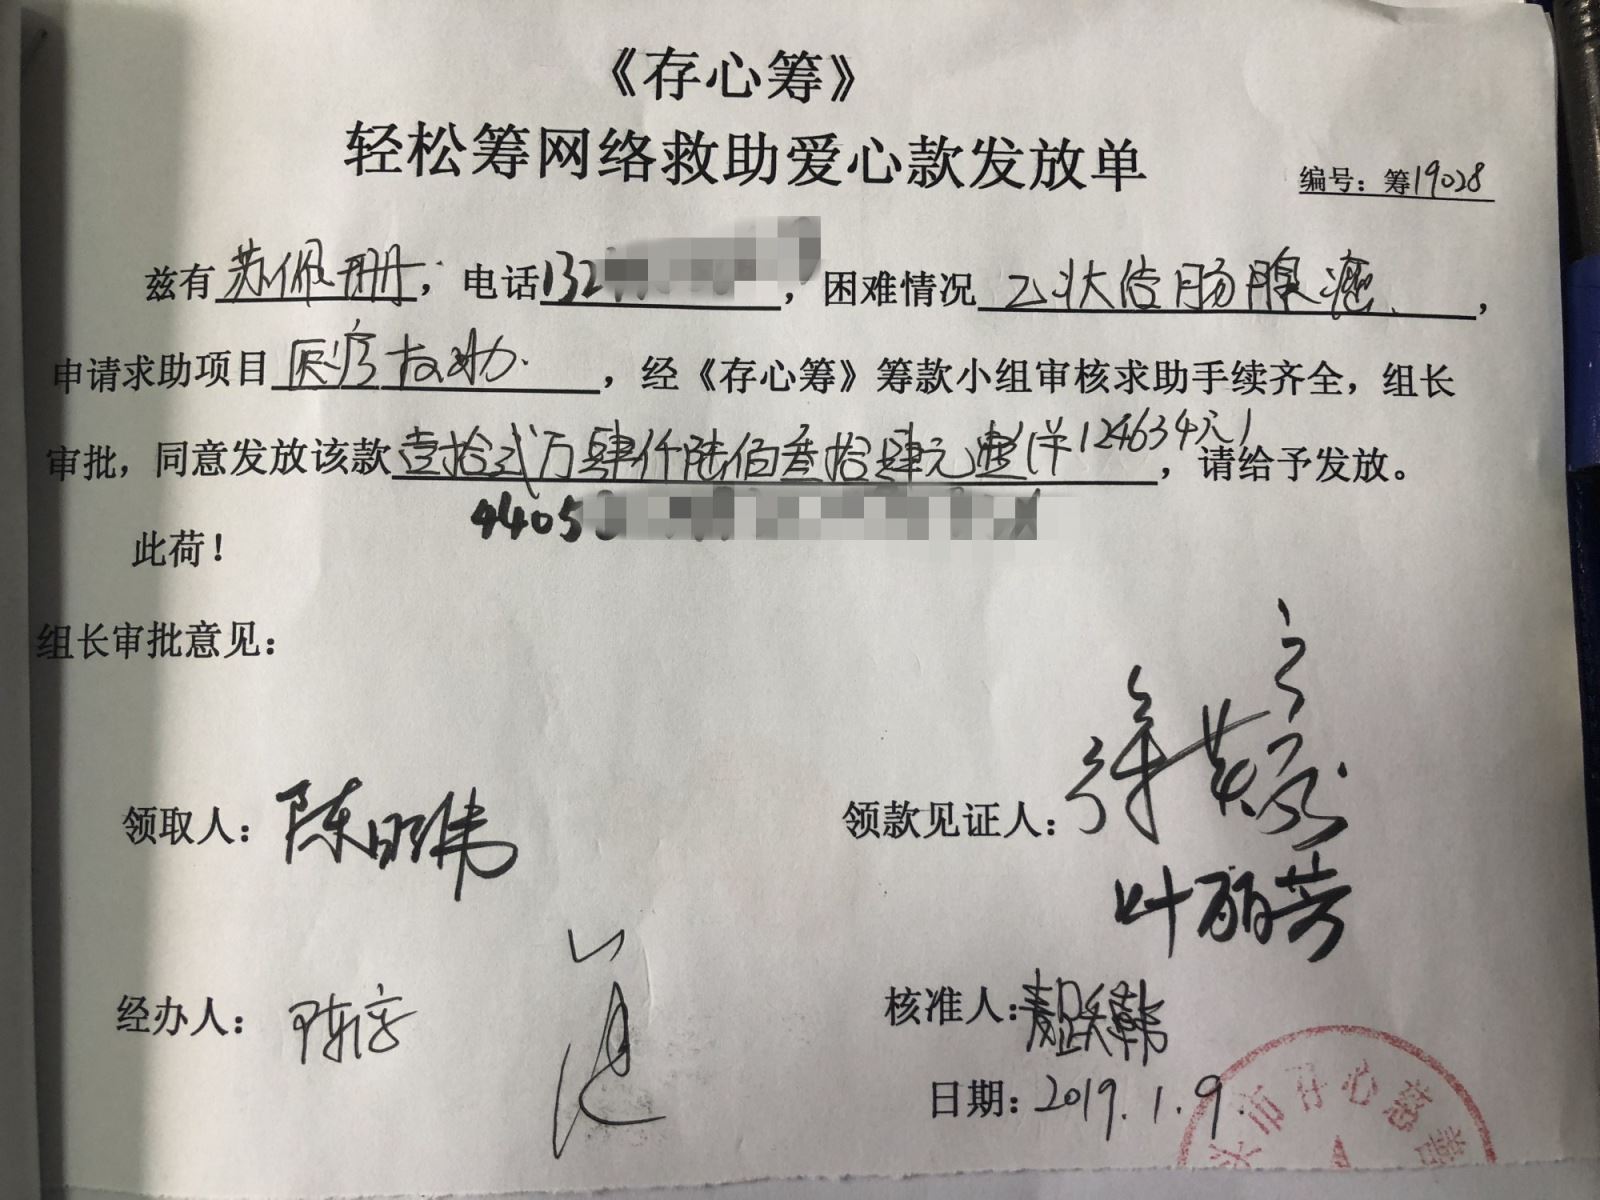 《存心筹》
轻松筹网络救助爱心款发放单
编号：筹19028
兹有苏佩珊，电话132，困难情况乙状结肠腺癌，
申请求助项目医疗救助，经《存心筹》筹款小组审核求助手续齐全，组长
审批，同意发放该款壹拾贰万肆仟陆佰叁拾肆元整（¥124634元），请给予发放。
4405
此荷！
组长审批意见：
领取人：陈
领款见证人：
叶丽芳
经办人：陈
核准人：
日期：2019.1.9.
头市存心慈善